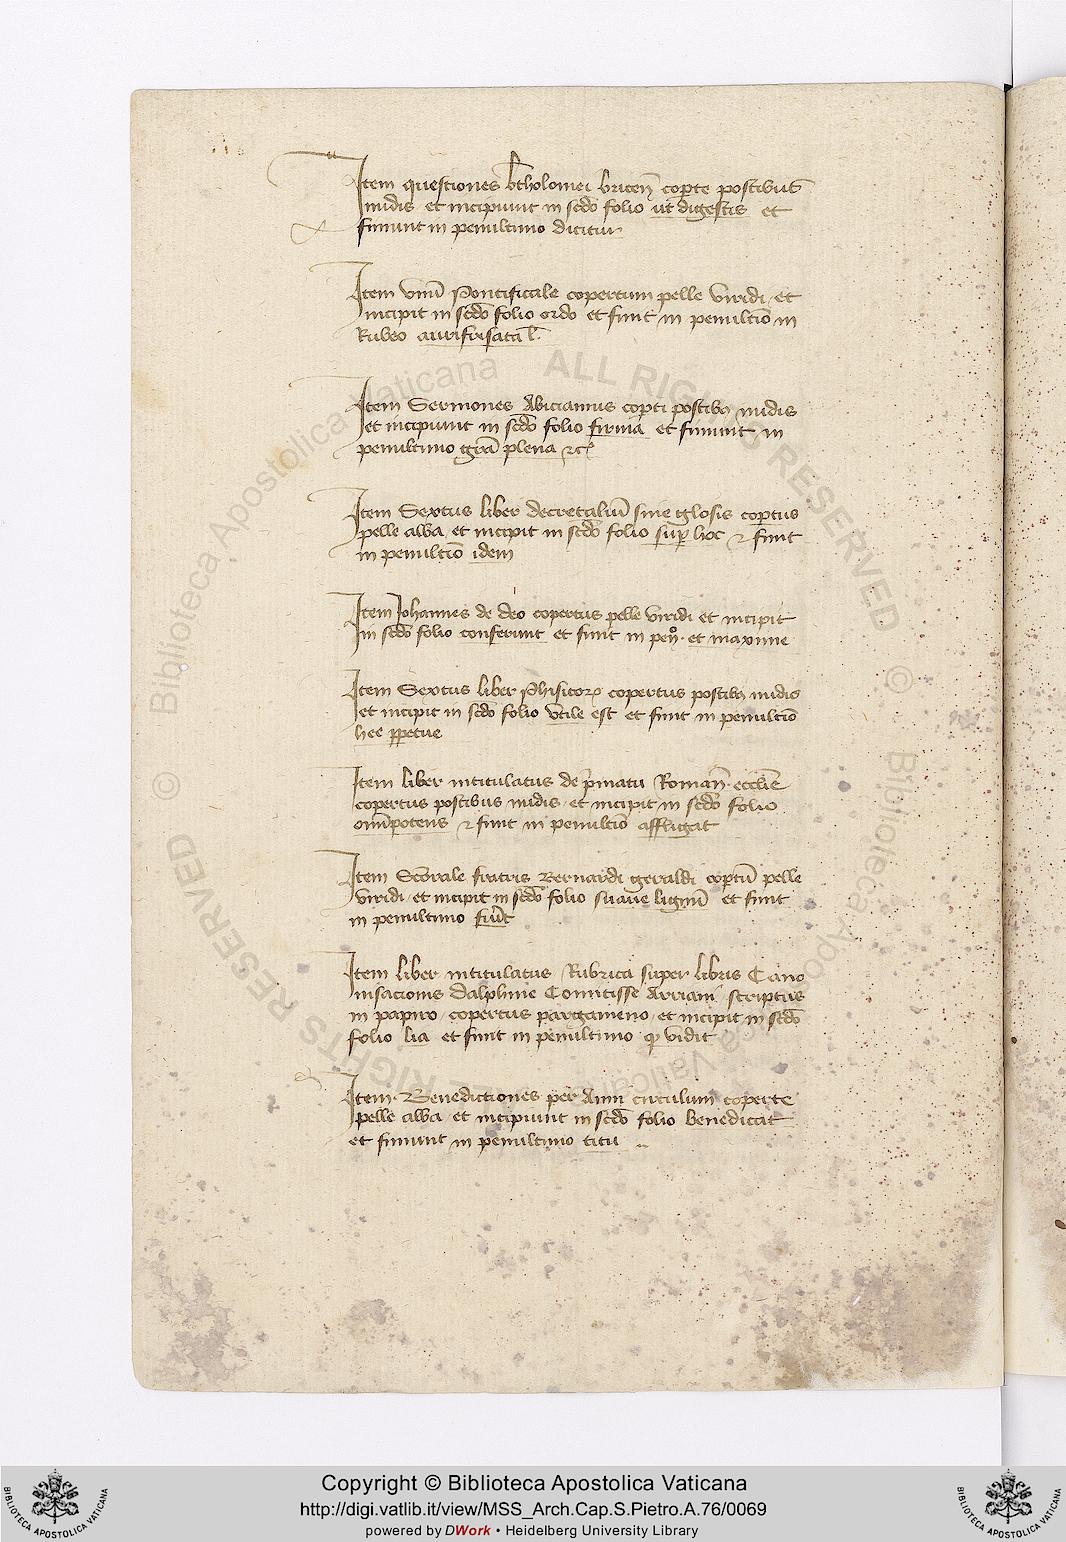 Item questiones btholomei bricen copte postibus
nudis et incipiunt in scdo folio ut digestis et
finiunt in penultimo dicitur
Item unu Pontificale copertum pelle viridi et
incipit in scdo folio ordo et finit in penultio in
Rubeo
Item Sermones copti postib nudis
et incipiunt in scdo folio firma et finiunt in
penultimo gra plena
Item Sextus liber decretaliu sine glosis coptus
pelle alba et incipit in scdo folio sup hoc & finit
in penultio idem
Item Johannes de deo copertus pelle viridi et incipit
in scdo folio conferunt et finit in pen. et maxime
Item Sextus liber Phisicor copertus postib nudis
et incipit in scdo folio utile est et finit in penultio
hec ppetue
Item liber intitulatus de pmatu Roman ecclie
copertus postibus nudis et incipit in scdo folio
omipotens & finit in penultio affligat
Item fratris Bernardi geraldi coptu pelle
viridi et incipit in scdo folio suave lignu et finit
in penultimo
Item liber intitulatus Rubrica super libris Cano
nisacionis dalphine Comitisse Arriani scriptus
in papiro copertus pargameno et incipit in scdo
folio lia et finit in penultimo vidit
Item Benedictiones per Anni circulum coperte
pelle alba et incipiunt in scdo folio benedicat
et finiunt in penultimo titu
Copyright © Biblioteca Apostolica Vaticana
http://digi.vatlib.it/view/MSS_Arch.Cap.S.Pietro.A.76/0069
powered by DWork • Heidelberg University Library
BIBLIOTECA APOSTOLICA VATICANA
BIBLIOTECA APOSTOLICA VATICANA
© Biblioteca Apostolica Vaticana ALL RIGHTS RESERVED
© Biblioteca Apostolica Vaticana ALL RIGHTS RESERVED